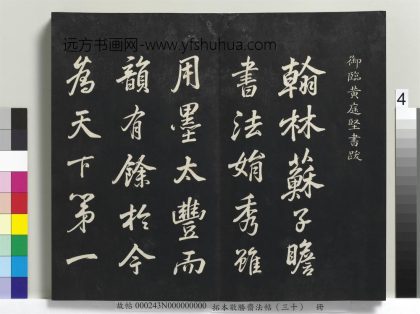 远方书画网-www.yfshuhua.com
御臨黄庭堅書跋
翰林蘇子瞻
書法娟秀雖
用墨太豐而
韻有餘於今
為天下第一
4
故帖 000243N000000000 拓本敬勝齋法帖（三十） 冊